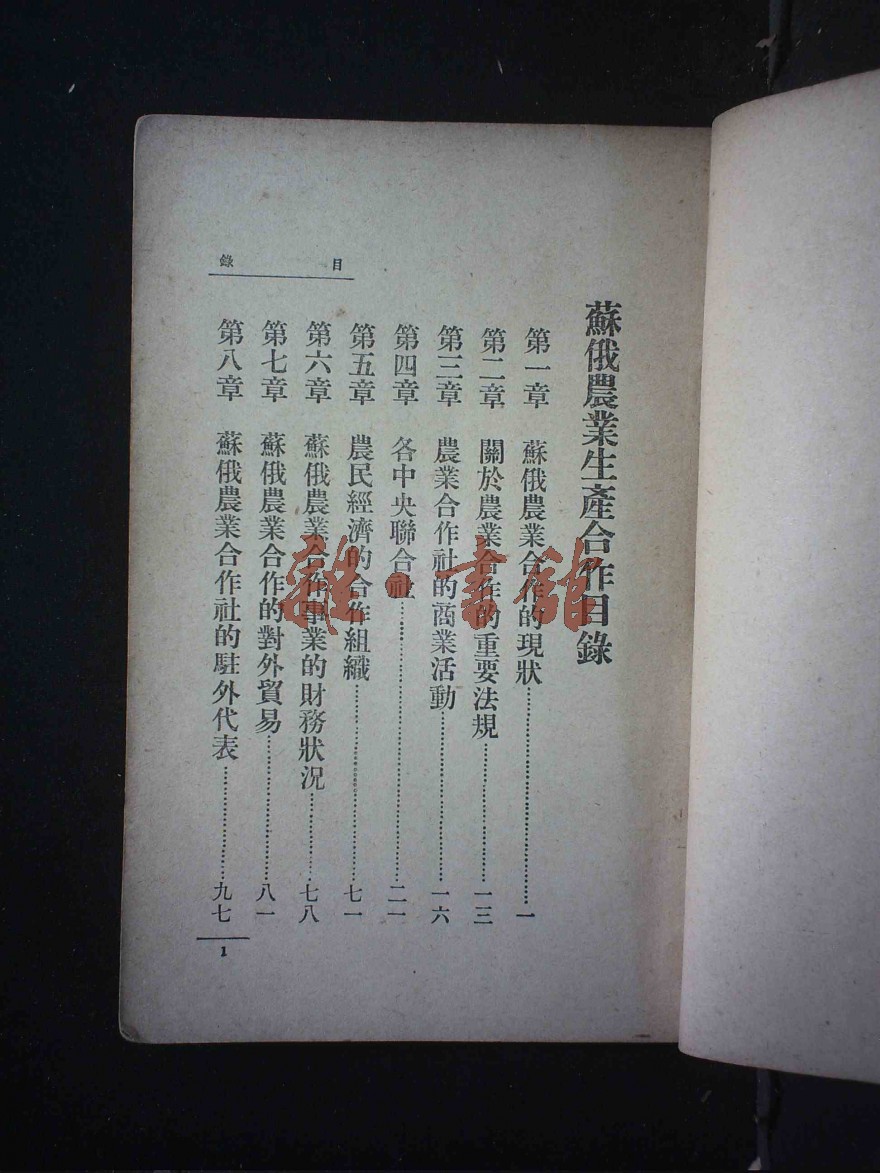 蘇俄農業生產合作目錄
第一章　蘇俄農業合作的現狀……………………一
第二章　關於農業合作的重要法規……………………一三
第三章　農業合作社的商業活動……………………一六
第四章　各中央聯合社……………………二一
第五章　農民經濟的合作組織……………………七一
第六章　蘇俄農業合作事業的財務狀況……………………七八
第七章　蘇俄農業合作的對外貿易……………………八一
第八章　蘇俄農業合作社的駐外代表……………………九七
目錄
1
雜·書館